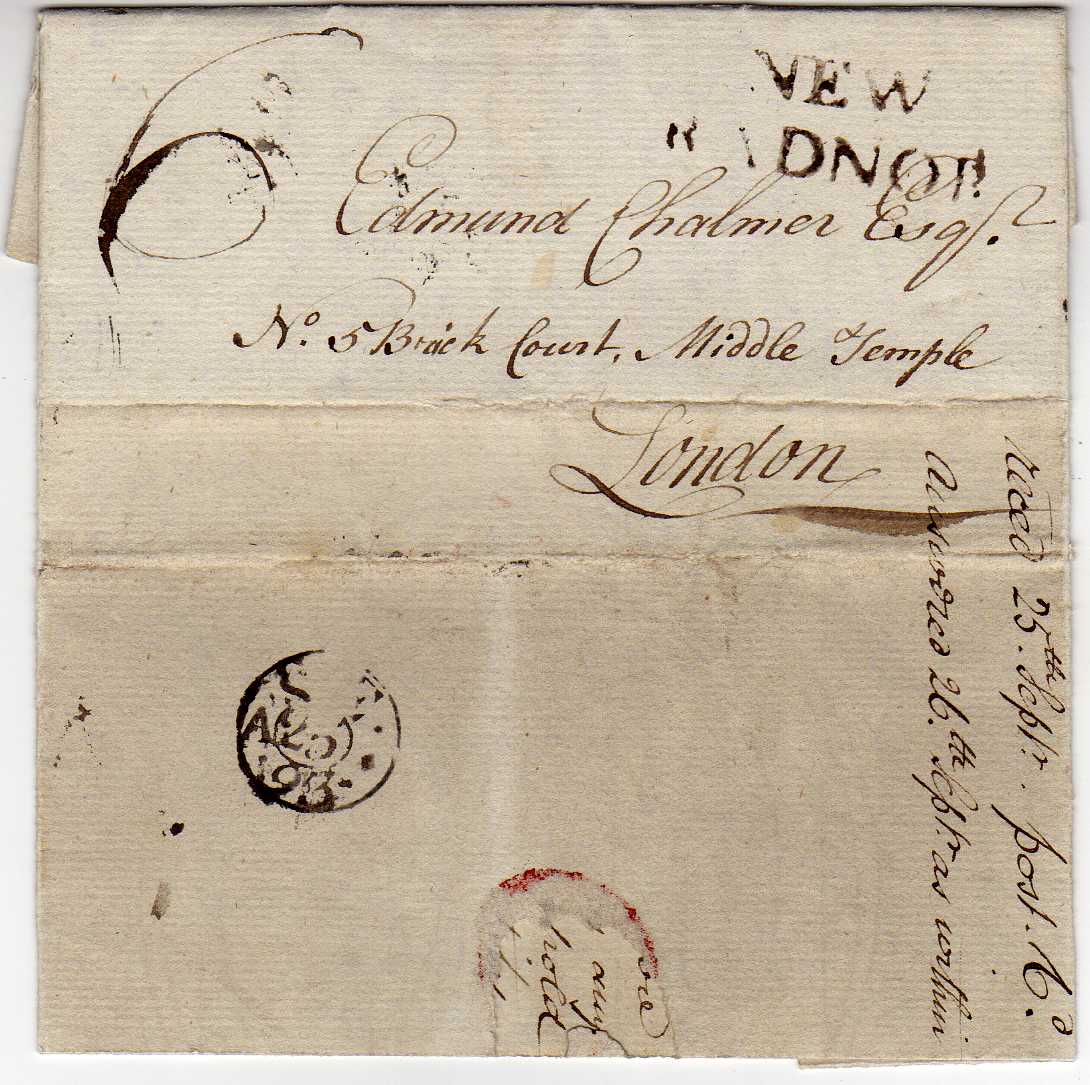 6
NEW
RADNOR
Edmund Chalmer Esqr.
No. 5 Brick Court, Middle Temple
London
Recd 25th Septr. post. 
Answered 26th Septr. as within
S
25
93
any
hold